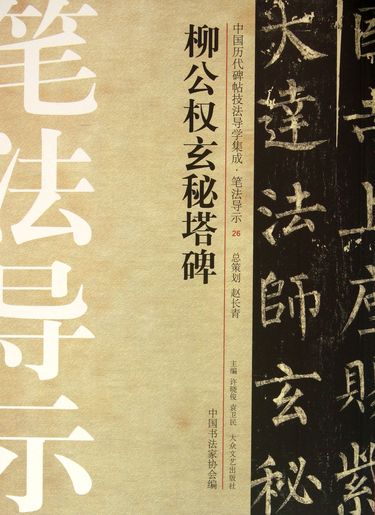 笔法导示
柳公权玄秘塔碑
中国历代碑帖技法导学集成·笔法导示 26
总策划 赵长青
主编 许晓俊 袁卫民 大众文艺出版社
中国书法家协会编
國寺上座賜紫
大達法師玄秘